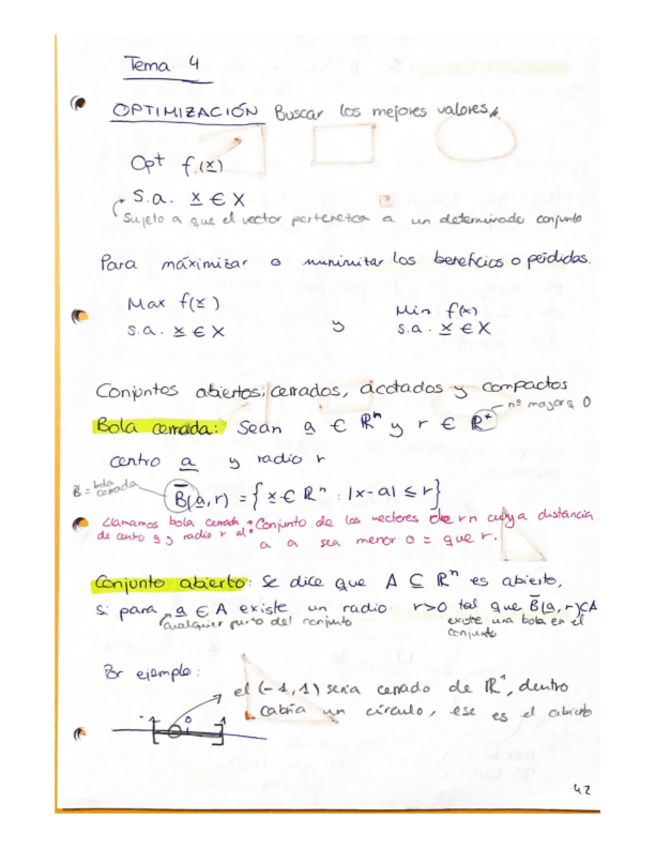 Tema 4
OPTIMIZACIÓN Buscar los mejores valores
Opt f(x)
s.a. x ∈ X
Sujeto a que el vector pertenezca a un determinado conjunto
Para máximizar o minimizar los beneficios o pérdidas.
Max f(x) Min f(x)
s.a. x ∈ X y s.a. x ∈ X
Conjuntos abiertos, cerrados, acotados y compactos
nº mayor a 0
Bola cerrada: Sean a ∈ ℝⁿ y r ∈ ℝ⁺
centro a y radio r
B̄ = bola cerrada
B̄(a,r) = {x ∈ ℝⁿ : |x-a| ≤ r}
Llamamos bola cerrada de centro a y radio r al:
Conjunto de los vectores de rn cuya distancia
a a sea menor o = que r.
Conjunto abierto: Se dice que A ⊆ ℝⁿ es abierto,
si para a ∈ A existe un radio r>0 tal que B̄(a,r)⊂A
cualquier punto del conjunto
existe una bola en el conjunto
Por ejemplo:
el (-1,1) seria cerrado de ℝ¹, dentro
cabría un círculo, ese es el abierto
-1 0 1
42